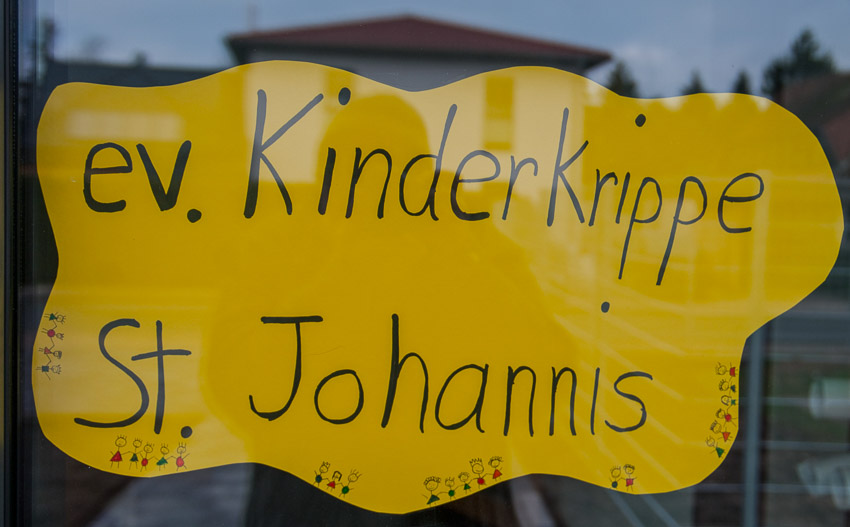 ev. Kinderkrippe
St. Johannis